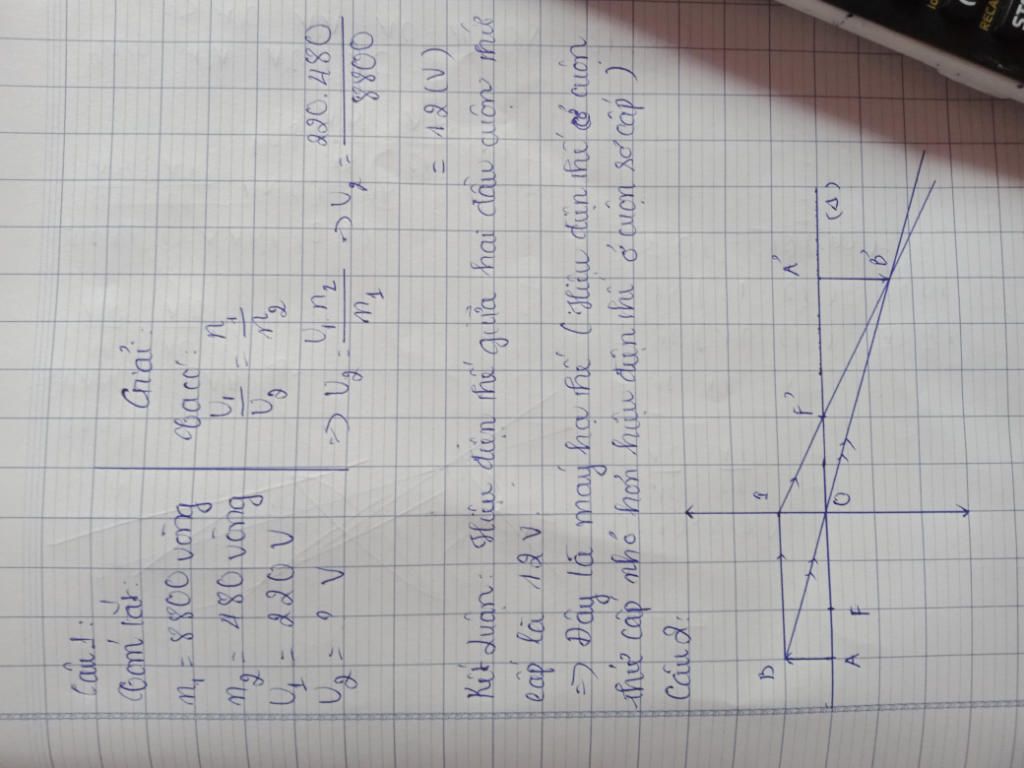 Câu 1:
Tóm tắt:
n₁ = 8800 vòng
n₂ = 480 vòng
U₁ = 220 V
U₂ = ? V
Giải:
Ta có:
U₁/U₂ = n₁/n₂
=> U₂ = U₁ n₂/n₁ => U₂ = 220.480/8800
= 12 (V)
Kết Luận: Hiệu điện thế giữa hai đầu cuộn thứ
cấp là 12 V.
=> Đây là máy hạ thế (Hiệu điện thế ở cuộn
thứ cấp nhỏ hơn hiệu điện thế ở cuộn sơ cấp)
Câu 2:
B I A'
F' (Δ)
A F O B'